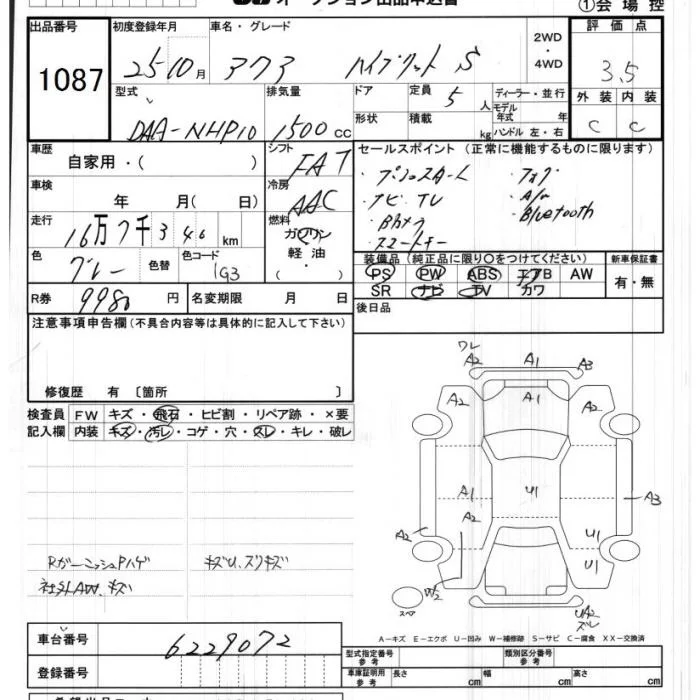 オークション出品申込書
①会場控
出品番号 1087
初度登録年月 25 10月
車名・グレード アクア ハイブリット S
2WD・4WD
評価点 3.5
外装 C 内装 C
型式 DAA-NHP10
排気量 1500 cc
ドア 形状
定員 5人
積載 kg
ディーラー・並行
モデル年式 年
ハンドル 左・右
車歴 自家用・( )
シフト FAT
セールスポイント (正常に機能するものに限ります)
・プッシュスタート ・フォグ
・ナビ TV ・A/W
・Bカメラ ・Bluetooth
・スマートキー
車検 年 月( 日)
冷房 AAC
走行 16万7千346 km
燃料 ガソリン 軽油 ・( )
色 グレー 色替
色コード 1G3
装備品 (純正品に限り○をつけてください)
PS PW ABS エアB AW
SR ナビ TV カワ
新車保証書 有・無
R券 9980 円
名変期限 月 日
後日品
注意事項申告欄 (不具合内容等は具体的に記入して下さい)
修復歴 有 〔箇所 〕
検査員記入欄
FW キズ・飛石・ヒビ割・リペア跡・×要
内装 キズ・汚レ・コゲ・穴・スレ・キレ・破レ
RガーニッシュPハゲ
社外AW、キズ
キズU、スリキズ
ワレ
A2 A1 A3
A2 A1 A2
A1 U1 A3
A2
A2 U1
U1
W2
スペア
UA2
ズレ
A-キズ E-エクボ U-凹み W-補修跡 S-サビ C-腐食 XX-交換済
車台番号 6229072
登録番号
型式指定番号 参考
類別区分番号 参考
車庫証明用 参考 長さ cm 幅 cm 高さ cm